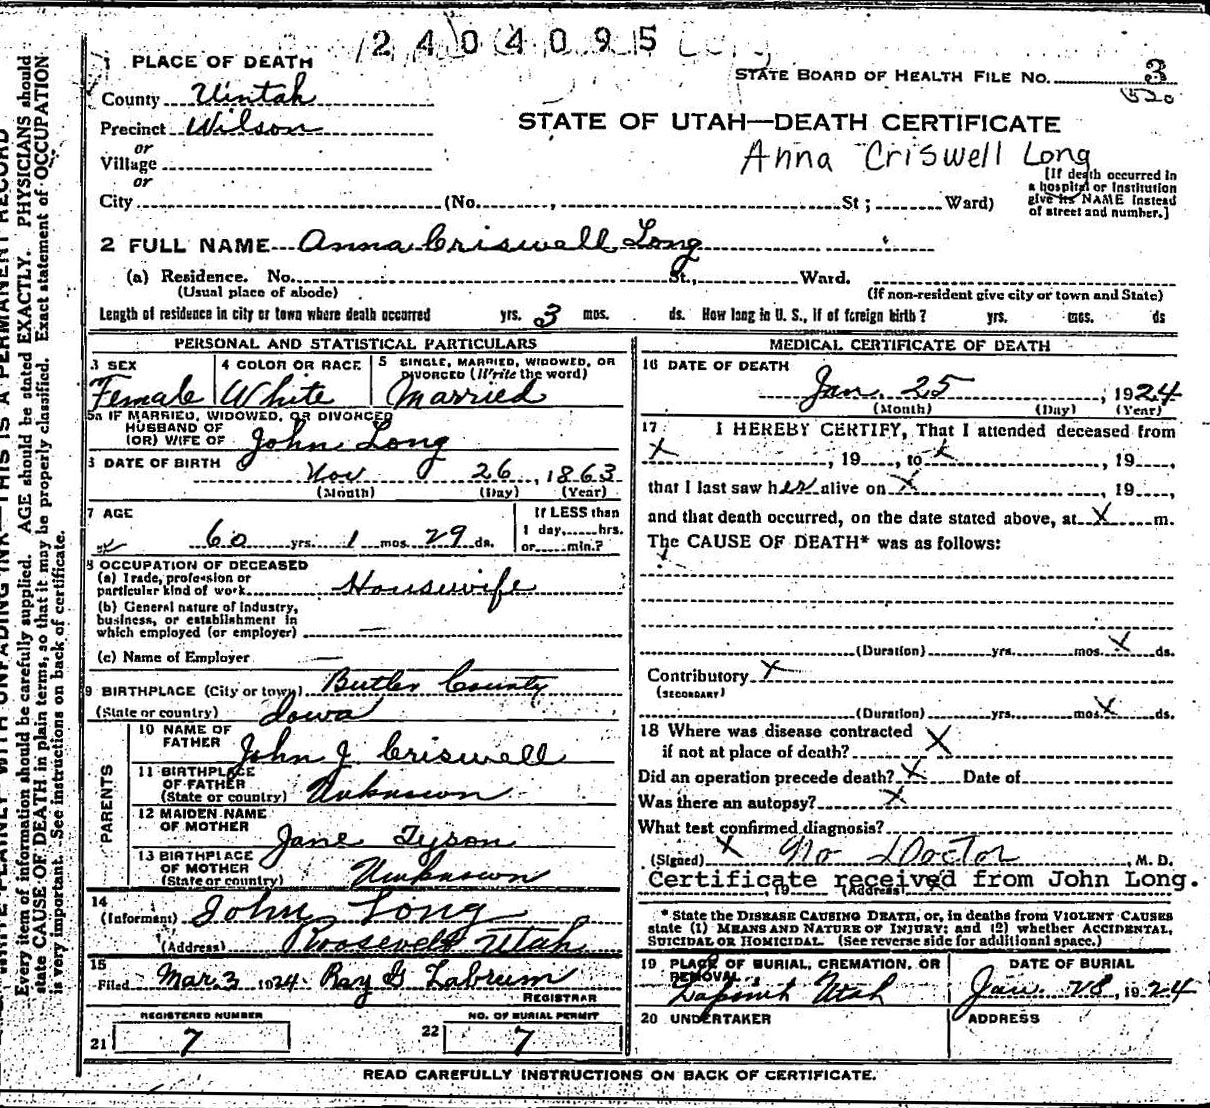 2404095
1 PLACE OF DEATH
STATE BOARD OF HEALTH FILE NO. 3
County Uintah
Precinct Wilson
STATE OF UTAH—DEATH CERTIFICATE
or
Village
Anna Criswell Long
or
City (No. , St ; Ward)
[If death occurred in
a hospital or institution
give its NAME instead
of street and number.]
2 FULL NAME Anna Criswell Long
(a) Residence. No. St., Ward.
(Usual place of abode)
(If non-resident give city or town and State)
Length of residence in city or town where death occurred yrs. 3 mos. ds. How long in U. S., if of foreign birth? yrs. mos. ds
PERSONAL AND STATISTICAL PARTICULARS
3 SEX
Female
4 COLOR OR RACE
White
5 SINGLE, MARRIED, WIDOWED, OR
DIVORCED (Write the word)
Married
5a IF MARRIED, WIDOWED, OR DIVORCED
HUSBAND OF
(OR) WIFE OF John Long
6 DATE OF BIRTH Nov 26, 1863
(Month) (Day) (Year)
7 AGE
60 yrs. 1 mos. 29 ds.
If LESS than
1 day, hrs.
or min.?
8 OCCUPATION OF DECEASED
(a) Trade, profession or
particular kind of work Housewife
(b) General nature of industry,
business, or establishment in
which employed (or employer) —
(c) Name of Employer —
9 BIRTHPLACE (City or town) Butler County
(State or country) Iowa
PARENTS
10 NAME OF
FATHER John J Criswell
11 BIRTHPLACE
OF FATHER
(State or country) Unknown
12 MAIDEN NAME
OF MOTHER Jane Tyson
13 BIRTHPLACE
OF MOTHER
(State or country) Unknown
14
(Informant) John Long
(Address) Roosevelt Utah
15
Filed Mar. 3 1924 Ray G Labrum
REGISTRAR
REGISTERED NUMBER
21 7
NO. OF BURIAL PERMIT
22 7
MEDICAL CERTIFICATE OF DEATH
16 DATE OF DEATH
Jan. 25, 1924
(Month) (Day) (Year)
17 I HEREBY CERTIFY, That I attended deceased from
X , 19 , to X , 19 ,
that I last saw her alive on X , 19 ,
and that death occurred, on the date stated above, at X m.
The CAUSE OF DEATH* was as follows:
(Duration) yrs. mos. X ds.
Contributory X
(SECONDARY)
(Duration) yrs. mos. X ds.
18 Where was disease contracted
if not at place of death? X
Did an operation precede death? X Date of
Was there an autopsy? X
What test confirmed diagnosis?
(Signed) X No Doctor , M. D.
, 19 (Address)
Certificate received from John Long.
* State the DISEASE CAUSING DEATH, or, in deaths from VIOLENT CAUSES
state (1) MEANS AND NATURE OF INJURY; and (2) whether ACCIDENTAL,
SUICIDAL OR HOMICIDAL. (See reverse side for additional space.)
19 PLACE OF BURIAL, CREMATION, OR
REMOVAL
Utah
DATE OF BURIAL
Jan. 28, 1924
20 UNDERTAKER
ADDRESS
READ CAREFULLY INSTRUCTIONS ON BACK OF CERTIFICATE.
WRITE PLAINLY WITH UNFADING INK—THIS IS A PERMANENT RECORD
Every item of information should be carefully supplied. AGE should be stated EXACTLY. PHYSICIANS should
state CAUSE OF DEATH in plain terms, so that it may be properly classified. Exact statement of OCCUPATION
is very important. See instructions on back of certificate.